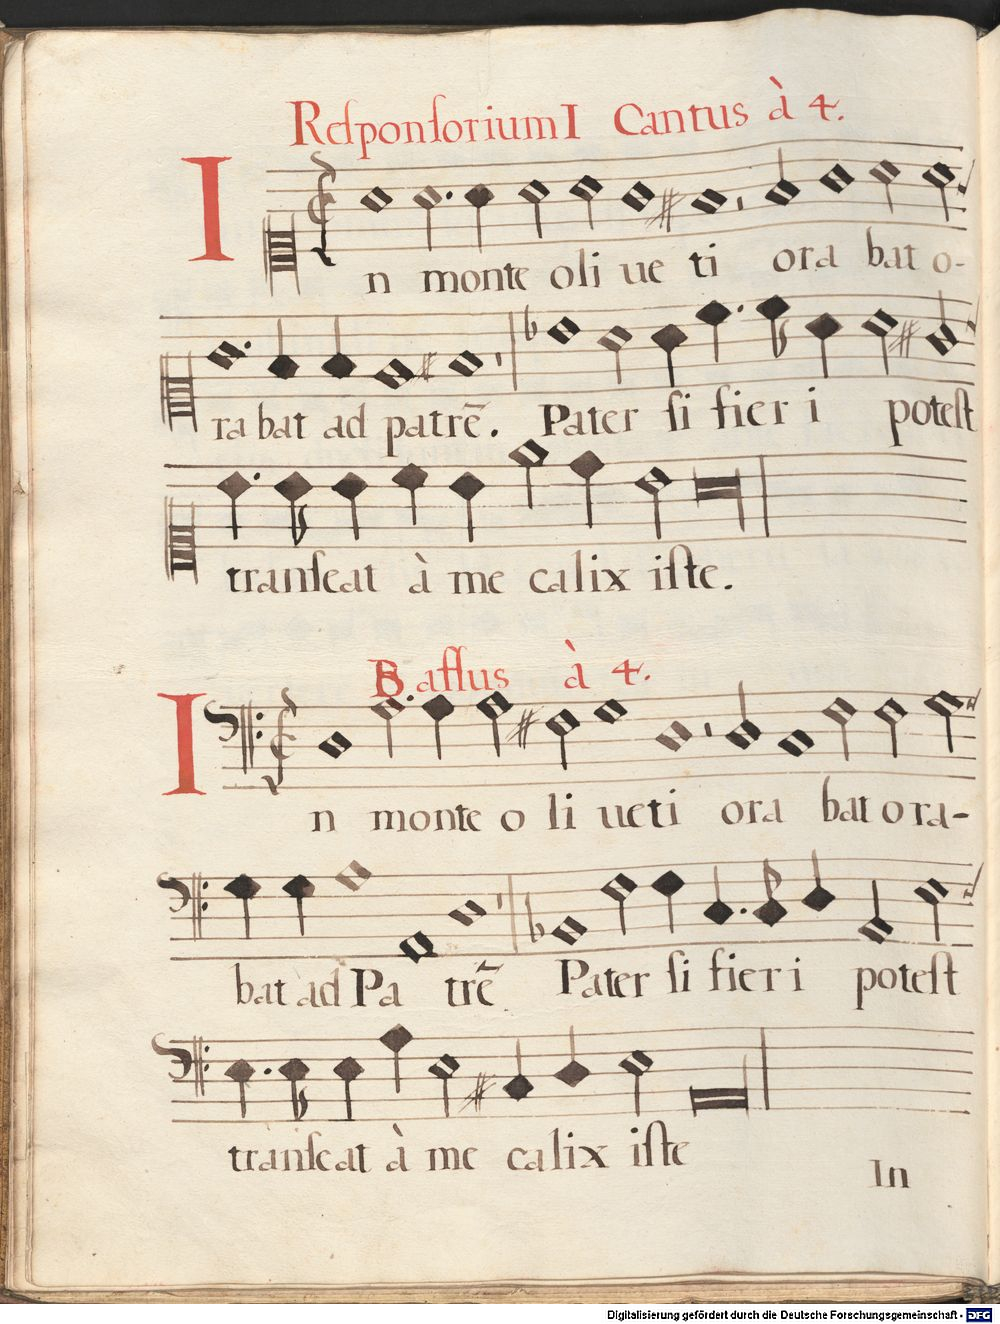 Responsorium I Cantus à 4.
In monte oli ue ti ora bat o-
ra bat ad patrē. Pater si fier i potest
transeat à me calix iste.
Bassus à 4.
In monte o li ueti ora bat o ra-
bat ad Pa trē Pater si fier i potest
transeat à me calix iste
In
Digitalisierung gefördert durch die Deutsche Forschungsgemeinschaft - DFG